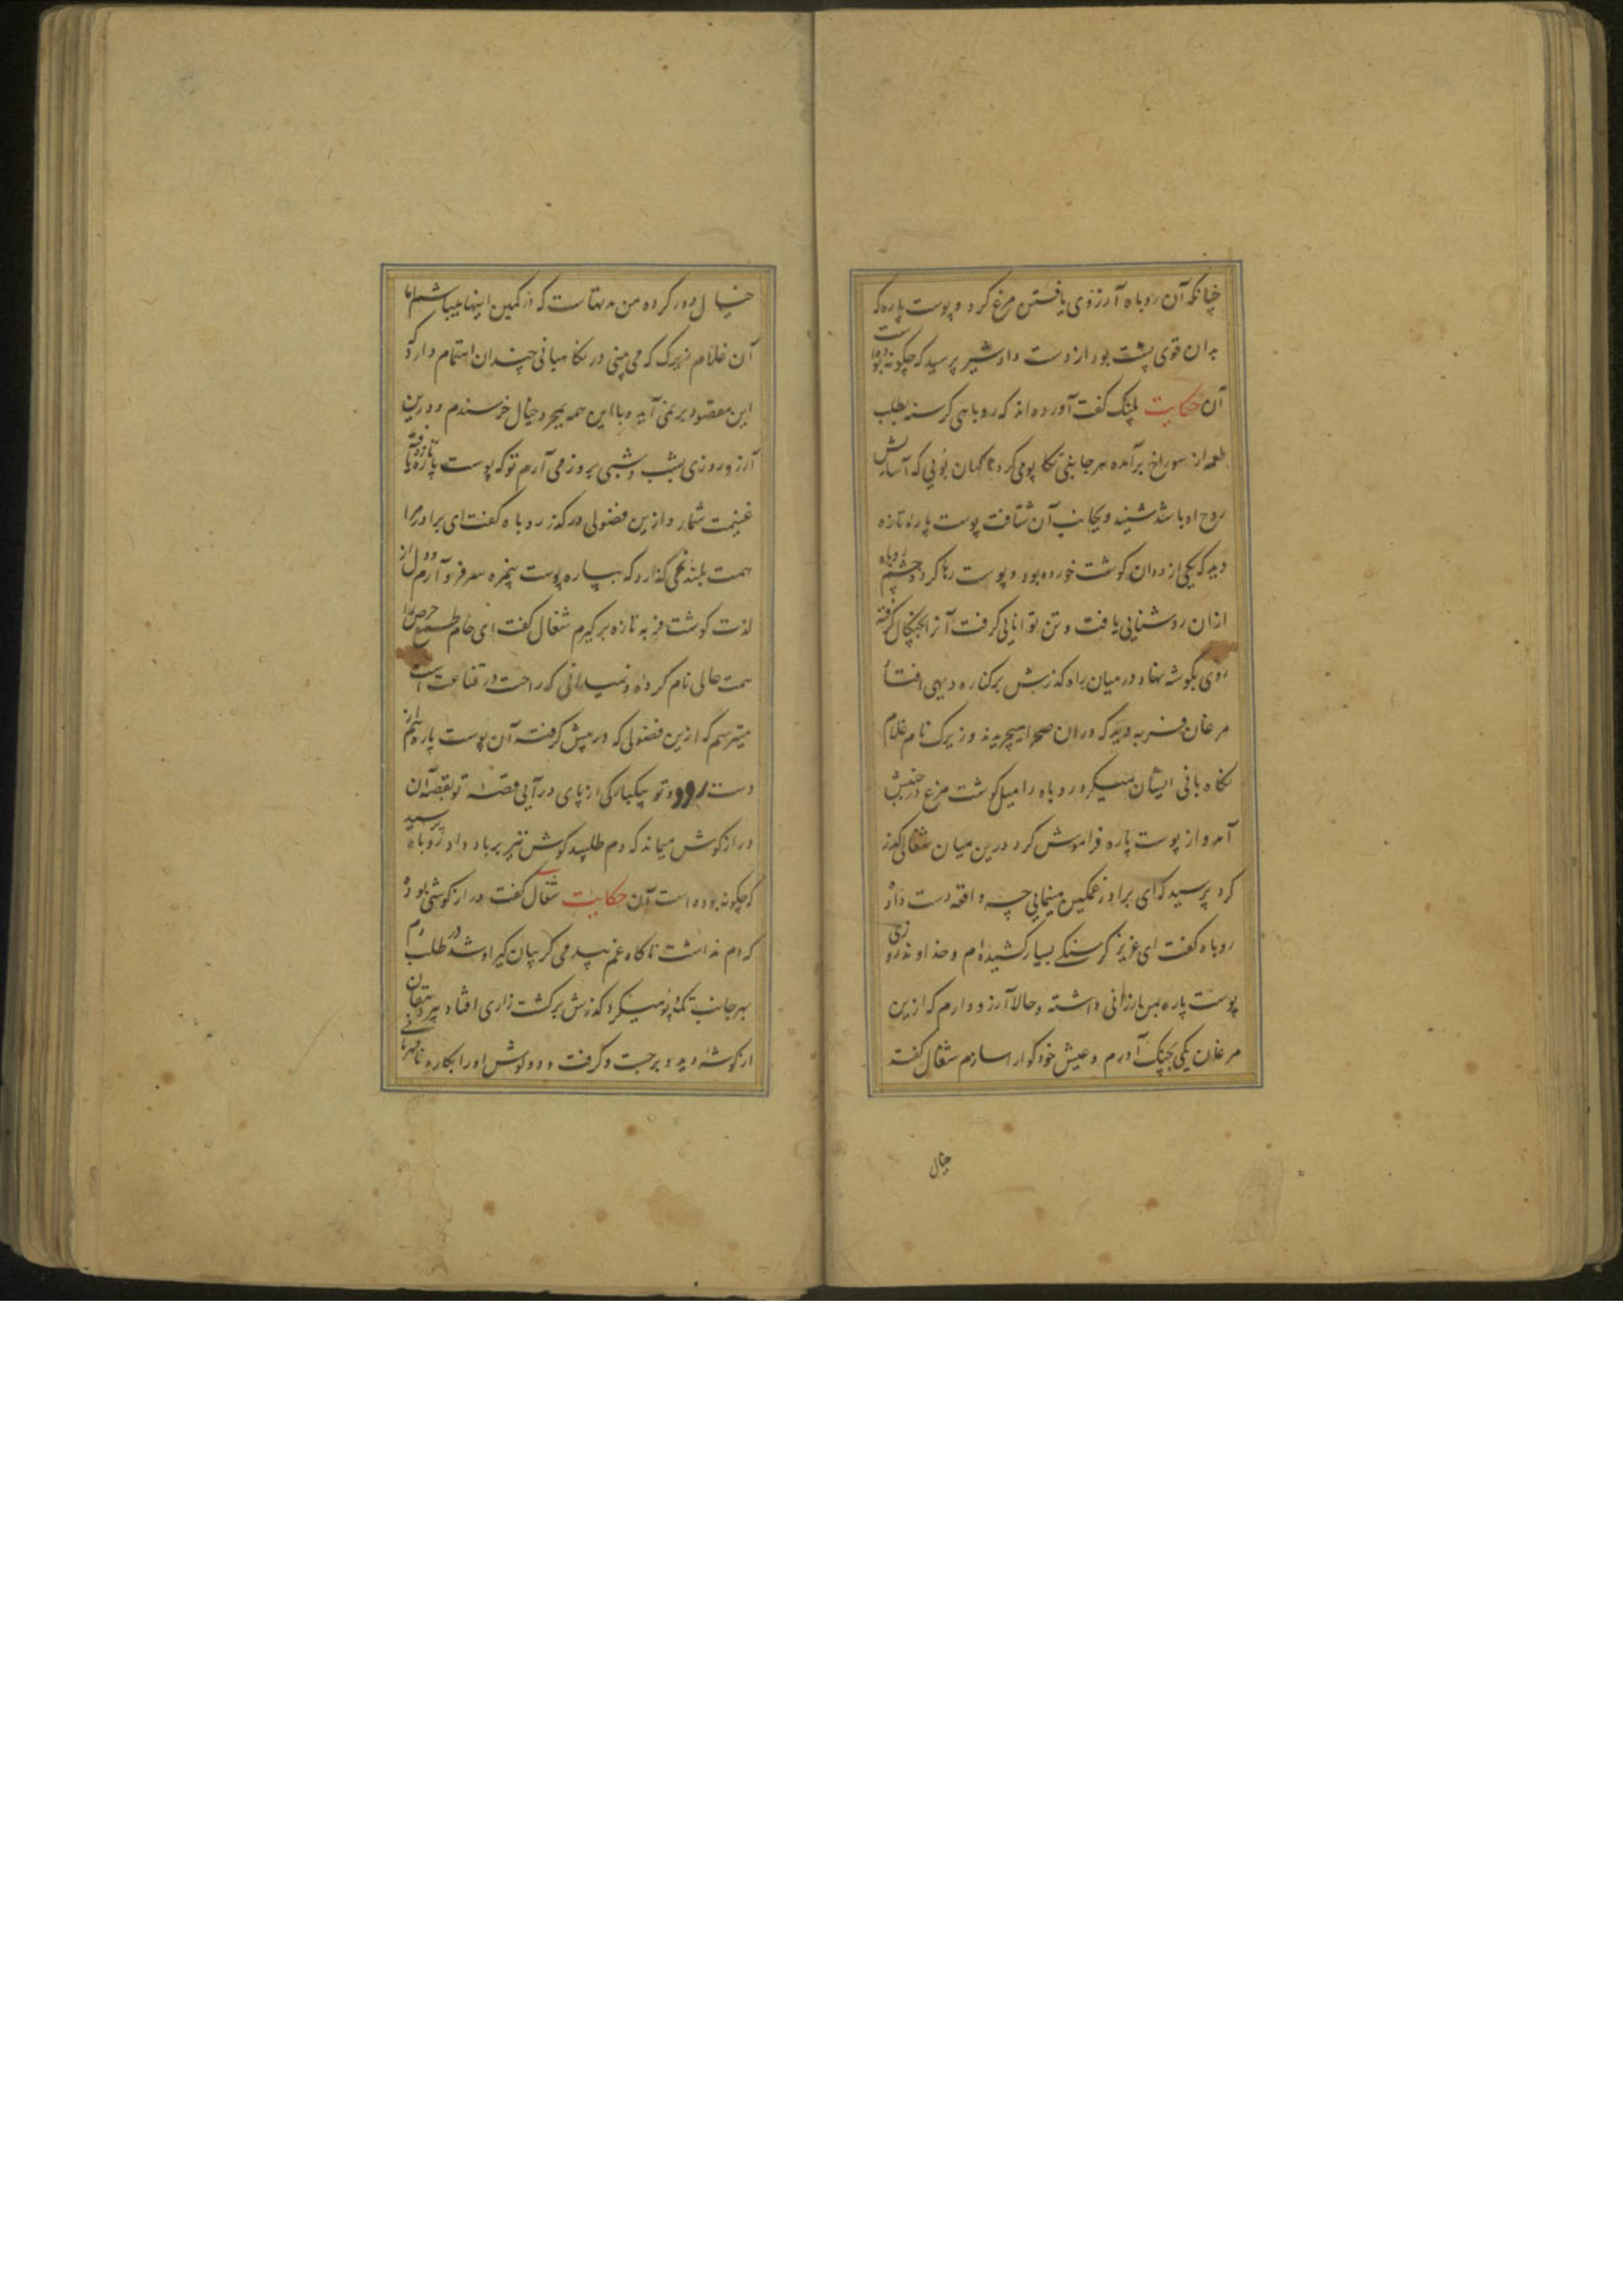 چنانکه آن روباه آرزوی یافتن مرغ کرد و پوست پاره که
بدان قوی پشت بود از دست داد شیر پرسید که چگونه بوده است
آن حکایت پلنگ گفت آورده اند که روباهی گرسنه بطلب
طعمه از سوراخ برآمده هر جانبی تکاپوی میکرد ناگهان بویی که آسایش
روح او باشد شنید و بجانب آن شتافت پوست پاره تازه
دید که یکی از ددان گوشت خورده بود و پوست رها کرده روباه چشم
ازان روشنایی یافت و تن توانایی گرفت آنرا بچنگال گرفته
روی بگوشه نهاد در میان راه گذرش بر کناره دیهی افتاد
مرغان فربه دید که دران صحرا میچریدند و زیرک نام غلام
نگاه بانی ایشان میکرد روباه را میل گوشت مرغ در جنبش
آمد و از پوست پاره فراموش کرد درین میان شغالی گذر
کرد پرسید که ای برادر غمگین مینمایی چه واقعه دست داد
روباه گفت ای عزیز گرسنگی بسیار کشیده ام و خداوند روزی
پوست پاره بمن ارزانی داشته و حالا آرزو دارم که ازین
مرغان یکی بچنگ آورم و عیش خود گوارا سازم شغال گفت
خیال
خیال دور کرده من مدتهاست که در کمین اینها میباشم اما
آن غلام زیرک که می بینی در نگاهبانی چندان اهتمام دارد که
این مقصود برنمی آید و با این همه بمجرد خیال خرسندم و درین
آرزو روزی بشب و شبی بروز می آرم تو که پوست پاره تازه یافته
غنیمت شمار و ازین فضولی درگذر روباه گفت ای برادر مرا
همت بلند نمی گذارد که بپاره پوست پنجره سر فرو آرم و دل از
لذت گوشت فربه تازه برگیرم شغال گفت ای خام طمع حرص را
همت عالی نام کرده و نمیدانی که راحت در قناعت است
میترسم که ازین فضولی که در پیش گرفته آن پوست پاره هم از
دست رود و تو بیکبارگی از پای درآیی قصه تو بقصه آن
درازگوش میماند که دم طلبید گوش نیز بر باد داد روباه پرسید
که چگونه بوده است آن حکایت شغال گفت درازگوشی بود
که دم نداشت ناگاه غم بیدمی گریبان گیر او شد در طلب دم
بهر جانب تک و پو میکرد گذرش بر کشت زاری افتاد پیر دهقان
از گوشه دید و برجست و گرفت و دو گوش او را بکارد